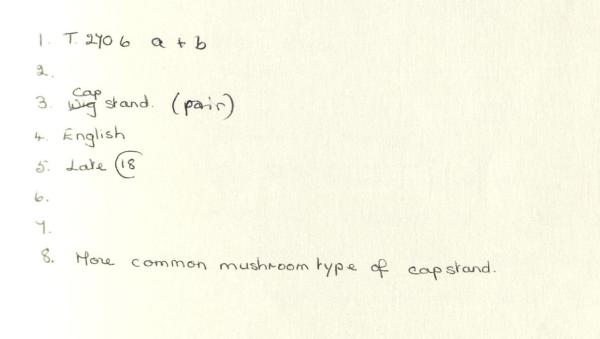 1. T. 2706 a + b
2.
3. Cap Wig stand. (pair)
4. English
5. Late 18
6.
7.
8. More common mushroom type of cap stand.